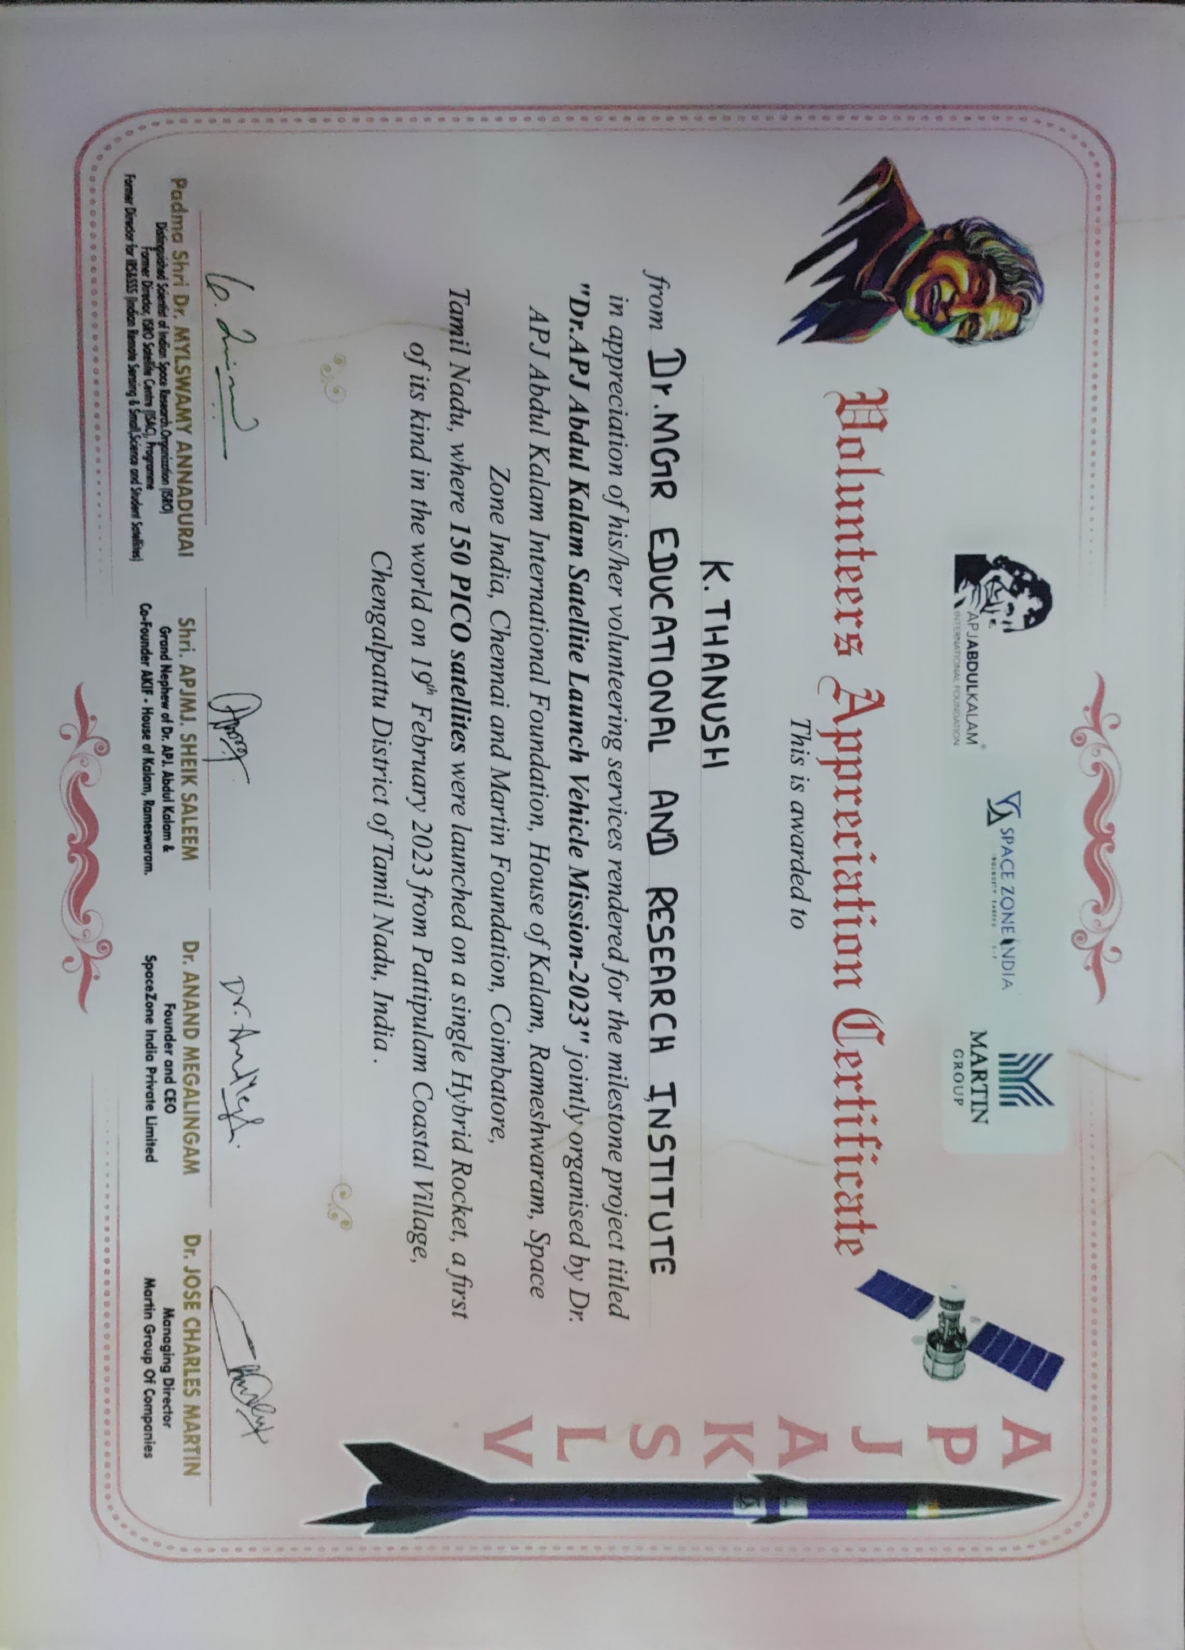 APJABDULKALAM
INTERNATIONAL FOUNDATION
SPACE ZONE INDIA
MARTIN
GROUP
APJAKSLV
Volunteers Appreciation Certificate
This is awarded to
K. THANUSH
from Dr.MGR EDUCATIONAL AND RESEARCH INSTITUTE
in appreciation of his/her volunteering services rendered for the milestone project titled
"Dr.APJ Abdul Kalam Satellite Launch Vehicle Mission-2023" jointly organised by Dr.
APJ Abdul Kalam International Foundation, House of Kalam, Rameshwaram, Space
Zone India, Chennai and Martin Foundation, Coimbatore,
Tamil Nadu, where 150 PICO satellites were launched on a single Hybrid Rocket, a first
of its kind in the world on 19th February 2023 from Pattipulam Coastal Village,
Chengalpattu District of Tamil Nadu, India .
Padma Shri Dr. MYLSWAMY ANNADURAI
Distinguished Scientist of Indian Space Research Organization (ISRO)
Former Director, ISRO Satellite Centre (ISAC), Programme
Former Director for IRS&SSS (Indian Remote Sensing & Small,Science and Student Satellites)
Shri. APJMJ. SHEIK SALEEM
Grand Nephew of Dr. APJ. Abdul Kalam &
Co-Founder AKIF - House of Kalam, Rameswaram.
Dr. ANAND MEGALINGAM
Founder and CEO
SpaceZone India Private Limited
Dr. JOSE CHARLES MARTIN
Managing Director
Martin Group Of Companies